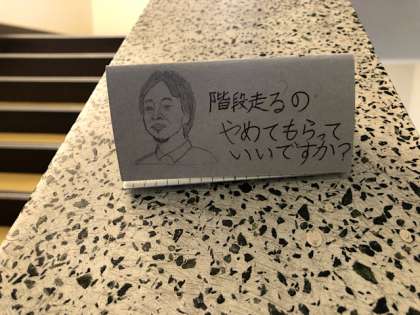 階段走るの
やめてもらって
いいですか?